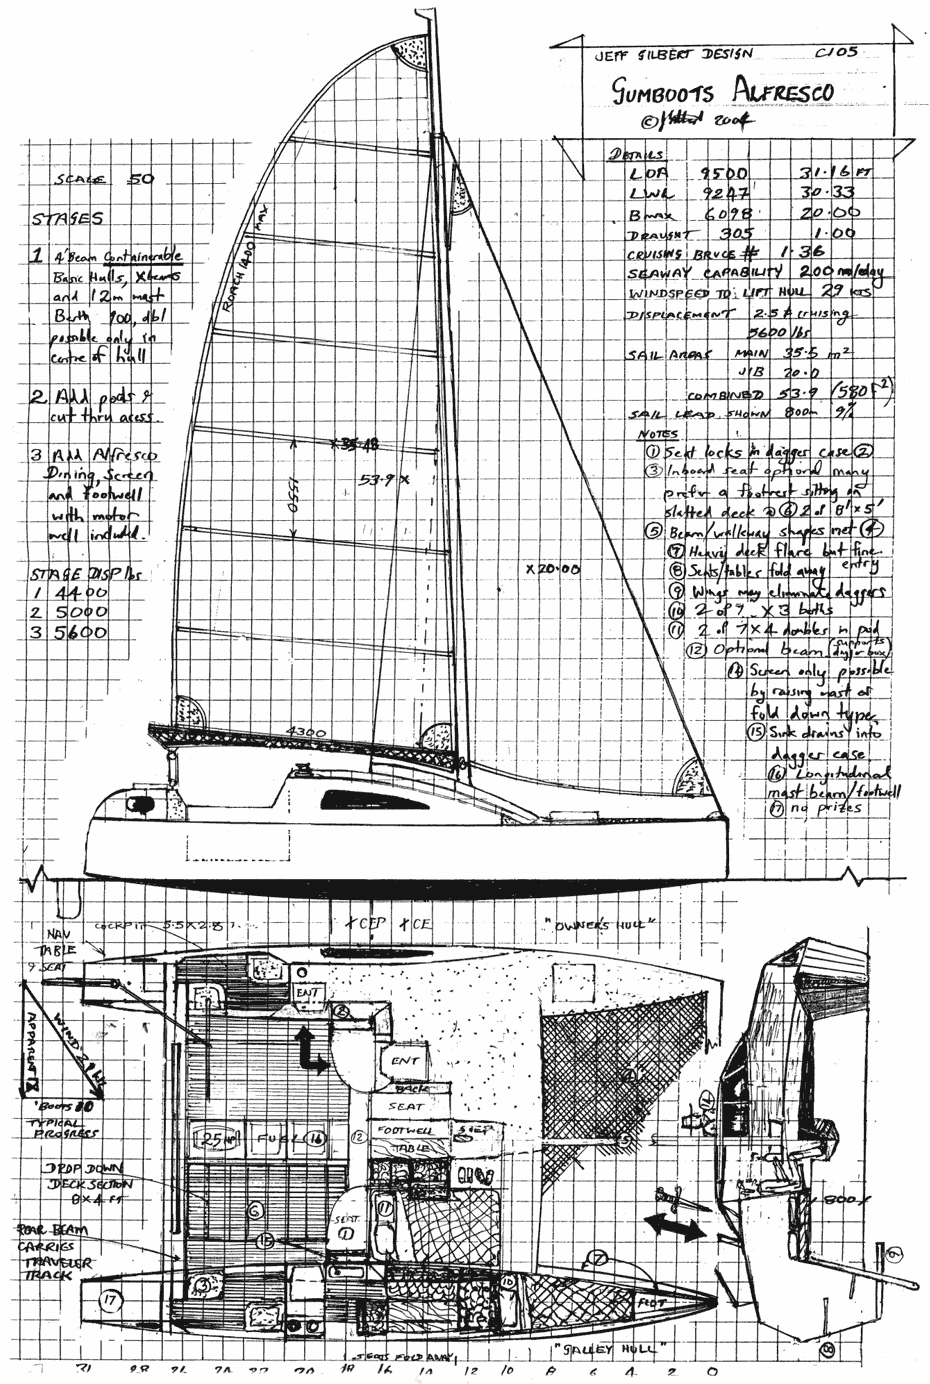 JEFF GILBERT DESIGN C105
GUMBOOTS ALFRESCO
© 2004
SCALE 50
STAGES
1 A'Beam Containerable
Basic Hulls, Xbeams
and 12m mast
Berth 900, dbl
possible only in
centre of hull
2 Add pods &
cut thru acess.
3 Add Alfresco
Dining, Screen
and footwell
with motor
well included.
STAGE DISP lbs
1 4400
2 5000
3 5600
DETAILS
LOA 9500 31.16 FT
LWL 9247 30.33
BMAX 6098 20.00
DRAUGHT 305 1.00
CRUISING BRUCE # 1.36
SEAWAY CAPABILITY 200 nm/day
WINDSPEED TO LIFT HULL 29 KTS
DISPLACEMENT 2.5 t cruising
5600 lbs
SAIL AREAS MAIN 35.5 m²
JIB 20.0
COMBINED 53.9 (580 F²)
SAIL LEAD SHOWN 800m 9%
NOTES
① Seat locks in dagger case ②
③ Inboard seat optional many
prefer a footrest sitting on
slatted deck @ ⑥ 2 of 8' x 5'
⑤ Beam/walkway shapes net ④
⑦ Heavy deck flare but fine
entry
⑧ Seats/tables fold away
⑨ Wings may eliminate daggers
⑩ 2 of 7 x 3 boths
⑪ 2 of 7 x 4 doubles in pod
⑫ Optional beam (supports
dagger box)
⑭ Screen only possible
by raising mast or
fold down type
⑮ Sink drains into
dagger case
⑯ Longitudinal
mast beam/footwell
⑰ no prizes
ROACH 1400 MAX
X 35.48
53.9 X
1550
X 20.00
4300
COCKPIT 5.5 X 2.8
X CEP X CE
"OWNER'S HULL"
NAV
TABLE
& SEAT
WIND 29 kts
APPARENT
BOOTS 10
TYPICAL
PROGRESS
DROP DOWN
DECK SECTION
8 X 4 FT
REAR BEAM
CARRIES
TRAVELER
TRACK
ENT
②
ENT
BACK
SEAT
FOOTWELL STEP
TABLE
25 HP FUEL ⑯ ⑫
④
⑤
⑥
SEAT
①
⑪
⑮
③
⑩
⑦
⑰
⑭
800
⑨
⑧
SEATS FOLD AWAY
"GALLEY HULL"
18 16 14 12 10 8 6 4 2 0